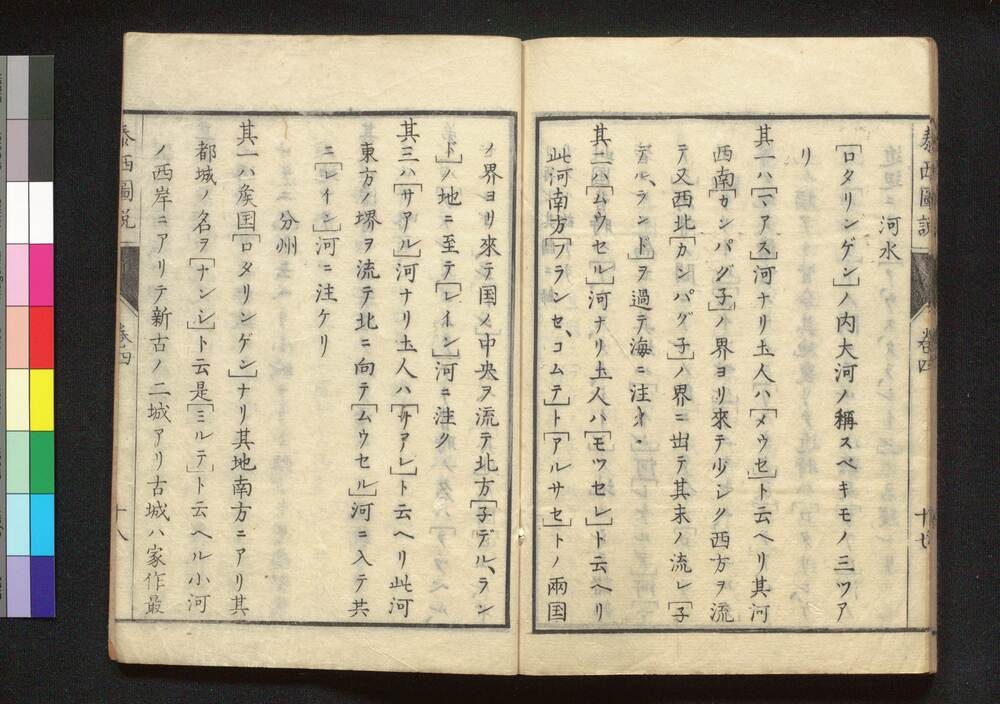 泰西圖説
巻四
十七
河水
「ロタリンゲン」ノ内大河ノ稱スベキモノ三ツア
リ
其一ハ「マアス」河ナリ土人ハ「メウセ」ト云ヘリ其河
西南「カンパグ子」ノ界ヨリ來テ少シク西方ヲ流
テ又西北「カンパグ子」ノ界ニ出テ其末ノ流レ「子
デル、ランド」ヲ過テ海ニ注ク
其二ハ「ムウセル」河ナリ土人ハ「モツセレ」ト云ヘリ
此河南方「フランセ、コムテ」ト「アルサセ」トノ兩国
ノ界ヨリ來テ国ノ中央ヲ流テ北方「子デル、ラン
ド」ノ地ニ至テ「レイン」河ニ注ク
其三ハ「サアル」河ナリ土人ハ「サアレ」ト云ヘリ此河
東方ノ堺ヲ流テ北ニ向テ「ムウセル」河ニ入テ共
ニ「レイン」河ニ注ケリ
分州
其一ハ矦国「ロタリンゲン」ナリ其地南方ニアリ其
都城ノ名ヲ「ナンシ」ト云是「ミルテ」ト云ヘル小河
ノ西岸ニアリテ新古ノ二城アリ古城ハ家作最
泰西圖説
巻四
十八